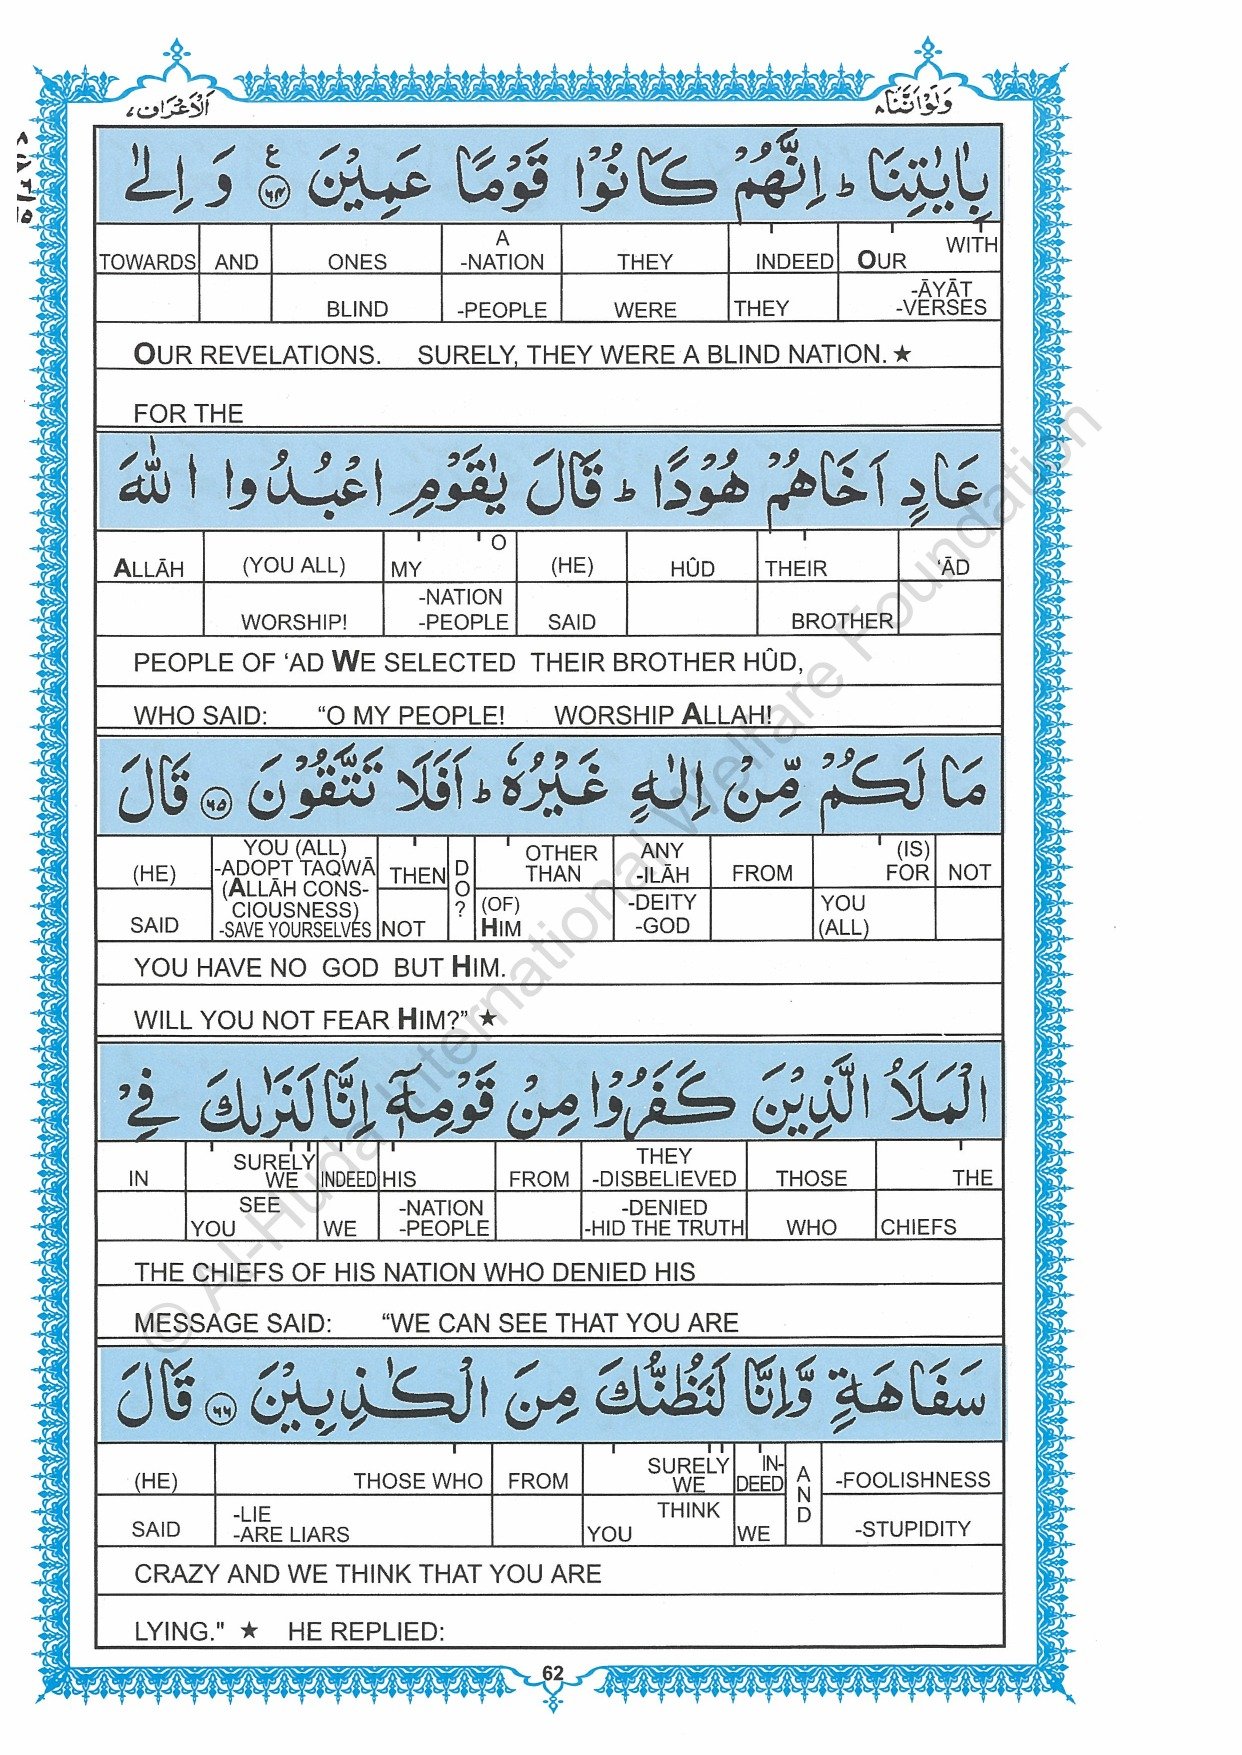 وَلَوْ اَنَّنَا ٨
اَلْاَعْرَاف ٧
بِاٰيٰتِنَا ؕ اِنَّهُمْ كَانُوْا قَوْمًا عَمِيْنَ ۶۴ ع وَ اِلٰى
TOWARDS AND ONES A -NATION THEY INDEED OUR WITH
BLIND -PEOPLE WERE THEY -ĀYĀT -VERSES
OUR REVELATIONS. SURELY, THEY WERE A BLIND NATION. ★
FOR THE
عَادٍ اَخَاهُمْ هُوْدًا ؕ قَالَ يٰقَوْمِ اعْبُدُوا اللّٰهَ
ALLĀH (YOU ALL) MY O (HE) HÛD THEIR ‘ĀD
WORSHIP! -NATION -PEOPLE SAID BROTHER
PEOPLE OF ‘AD WE SELECTED THEIR BROTHER HÛD,
WHO SAID: “O MY PEOPLE! WORSHIP ALLAH!
مَا لَكُمْ مِّنْ اِلٰهٍ غَيْرُهٗ ؕ اَفَلَا تَتَّقُوْنَ ۶۵ قَالَ
(HE) YOU (ALL) -ADOPT TAQWĀ (ALLĀH CONS- THEN DO? OTHER THAN ANY -ILĀH FROM (IS) FOR NOT
SAID CIOUSNESS) -SAVE YOURSELVES NOT (OF) HIM -DEITY -GOD YOU (ALL)
YOU HAVE NO GOD BUT HIM.
WILL YOU NOT FEAR HIM?” ★
الْمَلَاُ الَّذِيْنَ كَفَرُوْا مِنْ قَوْمِهٖٓ اِنَّا لَنَرٰىكَ فِيْ
IN SURELY WE INDEED HIS FROM THEY -DISBELIEVED THOSE THE
SEE YOU WE -NATION -PEOPLE -DENIED -HID THE TRUTH WHO CHIEFS
THE CHIEFS OF HIS NATION WHO DENIED HIS
MESSAGE SAID: “WE CAN SEE THAT YOU ARE
سَفَاهَةٍ وَّاِنَّا لَنَظُنُّكَ مِنَ الْكٰذِبِيْنَ ۶۶ قَالَ
(HE) THOSE WHO FROM SURELY WE IN-DEED AND -FOOLISHNESS
SAID -LIE -ARE LIARS THINK YOU WE -STUPIDITY
CRAZY AND WE THINK THAT YOU ARE
LYING." ★ HE REPLIED:
62
© Al-Huda International Welfare Foundation